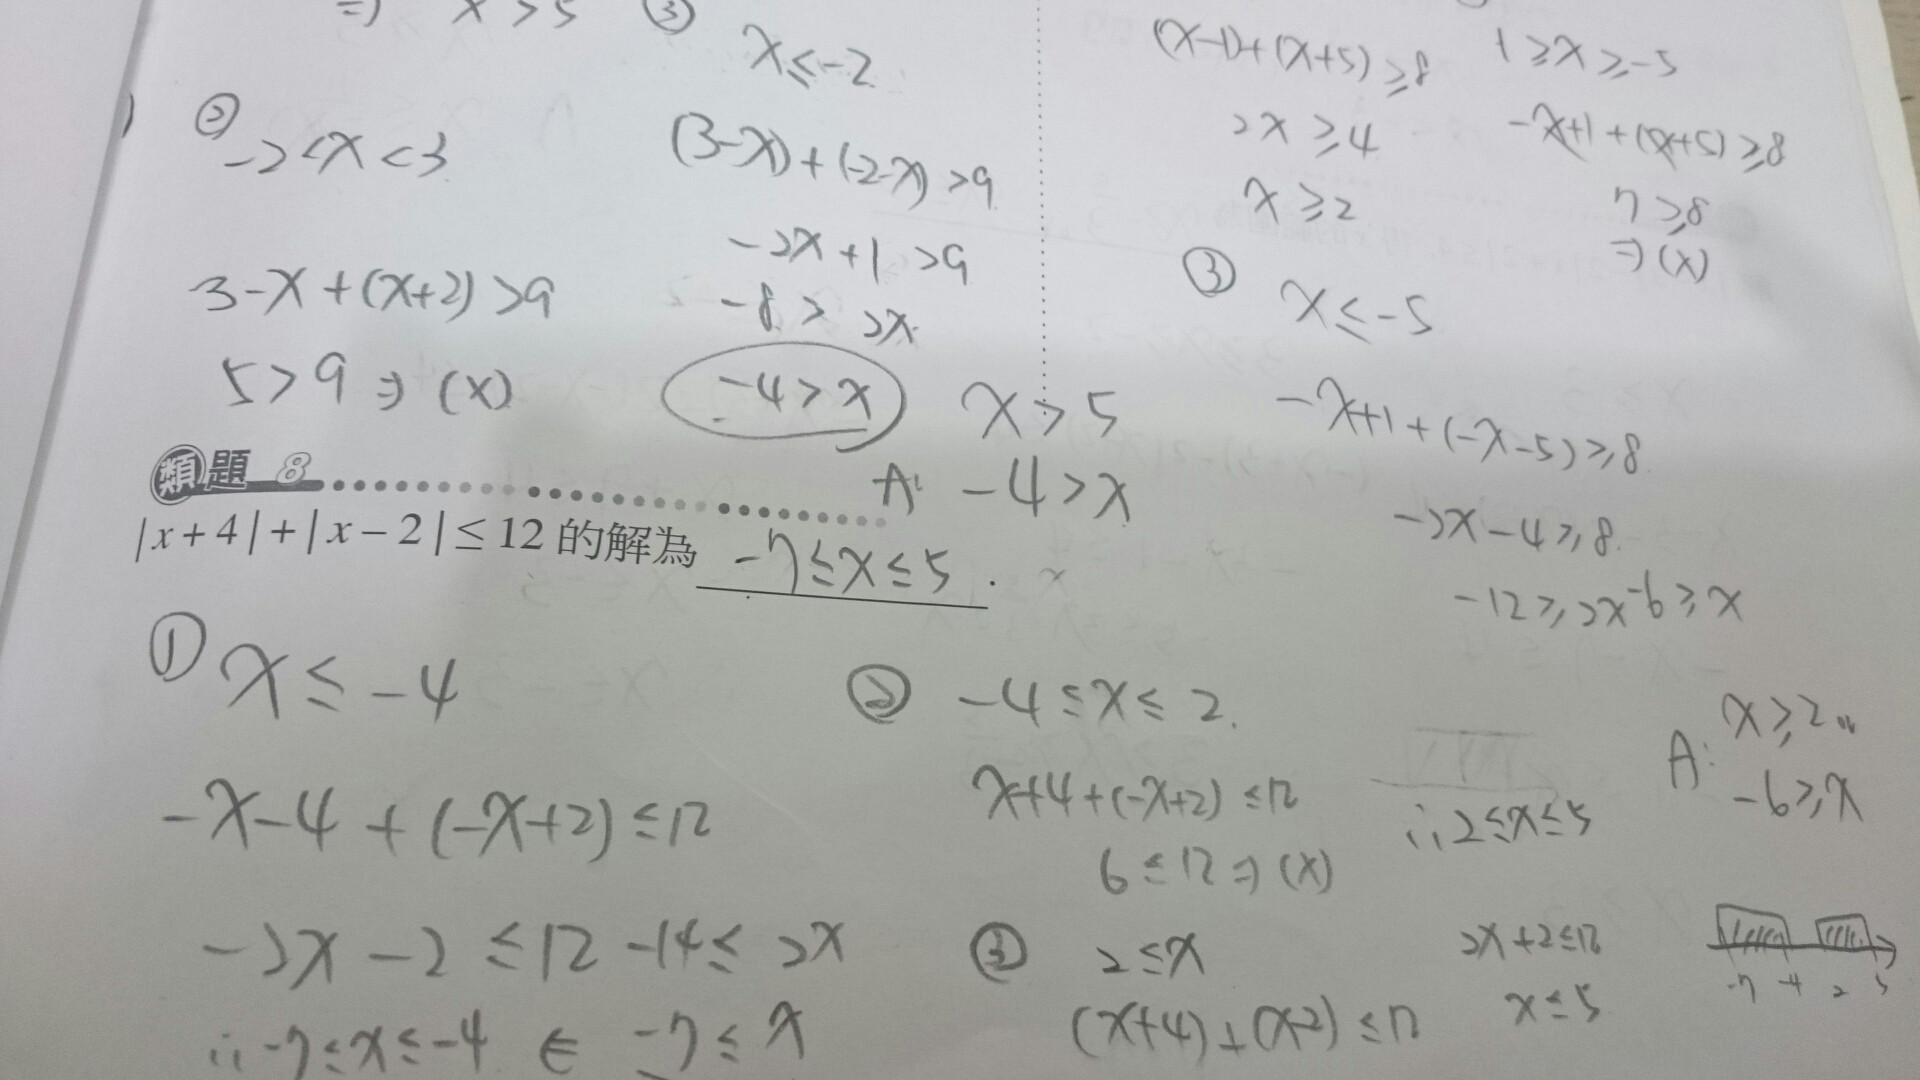 ⇒ x > 5
② -2 < x < 3
3-x + (x+2) > 9
5 > 9 ⇒ (x)
③
x ≤ -2
(3-x) + (-2-x) > 9
-2x + 1 > 9
-8 > 2x
-4 > x
x > 5
A: -4 > x
(x-1) + (x+5) ≥ 8
2x ≥ 4
x ≥ 2
1 ≥ x ≥ -5
-x+1 + (x+5) ≥ 8
7 ≥ 8
⇒ (x)
③ x ≤ -5
-x+1 + (-x-5) ≥ 8
-2x - 4 ≥ 8
-12 ≥ 2x -6 ≥ x
A: x ≥ 2
-6 ≥ x
類題 8
|x+4|+|x-2|≤12 的解為 -7 ≤ x ≤ 5 .
① x ≤ -4
-x-4 + (-x+2) ≤ 12
-2x - 2 ≤ 12 -14 ≤ 2x
∴ -7 ≤ x ≤ -4 ∈ -7 ≤ x
② -4 ≤ x ≤ 2
x+4 + (-x+2) ≤ 12
6 ≤ 12 ⇒ (x)
③ 2 ≤ x
(x+4) + (x-2) ≤ 12
2x + 2 ≤ 12
x ≤ 5
∴ 2 ≤ x ≤ 5
-7 -4 2 5